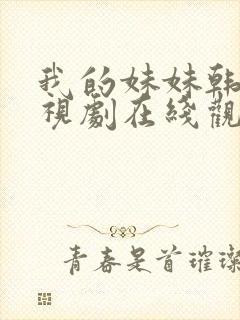 我的妹妹韩
視劇在綫觀
青春是首璀璨